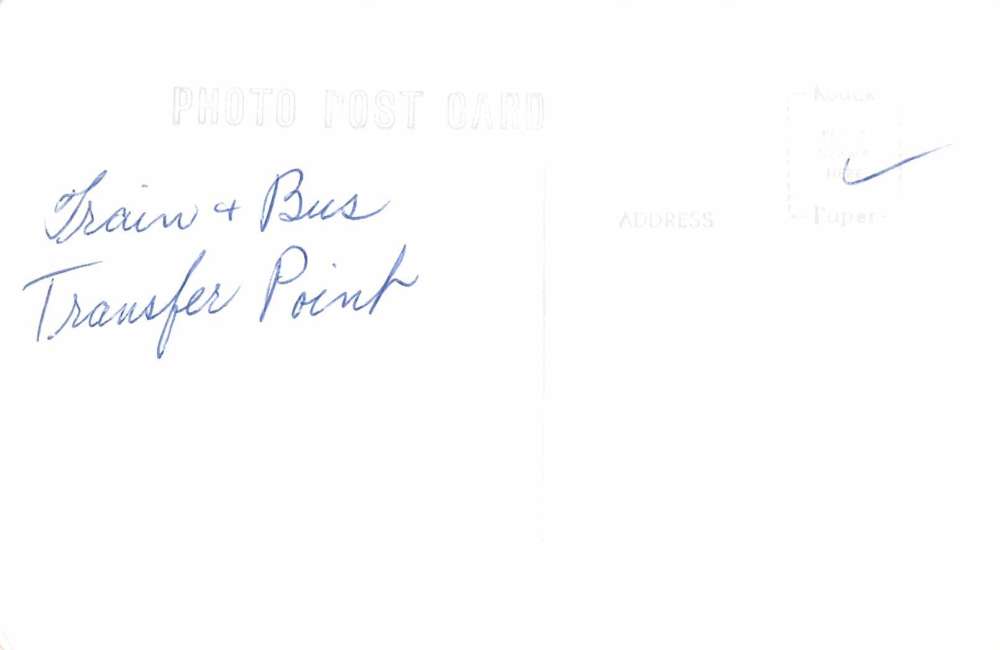 PHOTO POST CARD
Train + Bus
Transfer Point
ADDRESS
Kodak
Paper